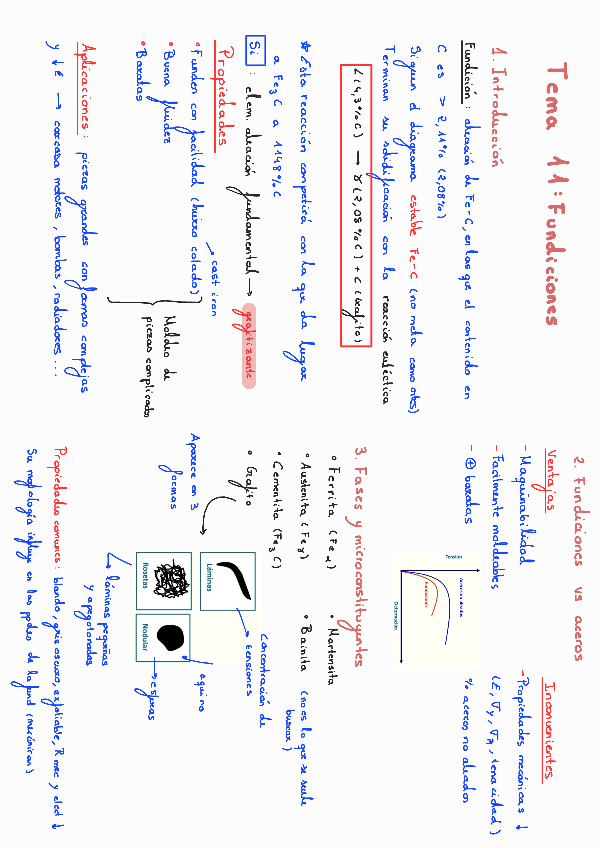 Tema 11: Fundiciones
1. Introducción
Fundición: aleación de Fe-C, en las que el contenido en
C es > 2,11% (2,08%)
Siguen el diagrama estable Fe-C (no meta como antes)
Terminan su solidificación con la reacción eutéctica
L (4,3%C) → γ (2,08%C) + C (Grafito)
* Esta reacción competirá con la que da lugar
a Fe3C a 1148%C
Si : elem. aleación fundamental → grafitizante
Propiedades
→ cast iron
• Funden con facilidad (hierro colado)
• Buena fluidez
• Baratas
Moldeo de
piezas complicadas
Aplicaciones: piezas grandes con formas complejas
y ↓€ → carcasa motores, bombas, radiadores...
2. Fundiciones vs aceros
Ventajas
- Maquinabilidad
- Facilmente moldeables
- ⊕ baratas
Inconvenientes
- Propiedades mecánicas ↓
(E, σy, σR, tenacidad)
% aceros no aleados
Tensión
Aceros no aleados
Fundiciones
Deformación
3. Fases y microconstituyentes
• Ferrita (Feα)
• Austenita (Feγ)
• Cementita (Fe3C)
• Grafito
• Martensita
• Bainita (no es lo que se suele
buscar)
Aparece en 3
formas
Láminas
Rosetas
Nodular
Concentración de
tensiones
equino
→ esferas
→ láminas pequeñas
y apegotonadas
Propiedades comunes: blando, gris oscuro, exfoliable, R mec y elect ↓
Su morfología influye en las ppdes de la fund (mecánicas)